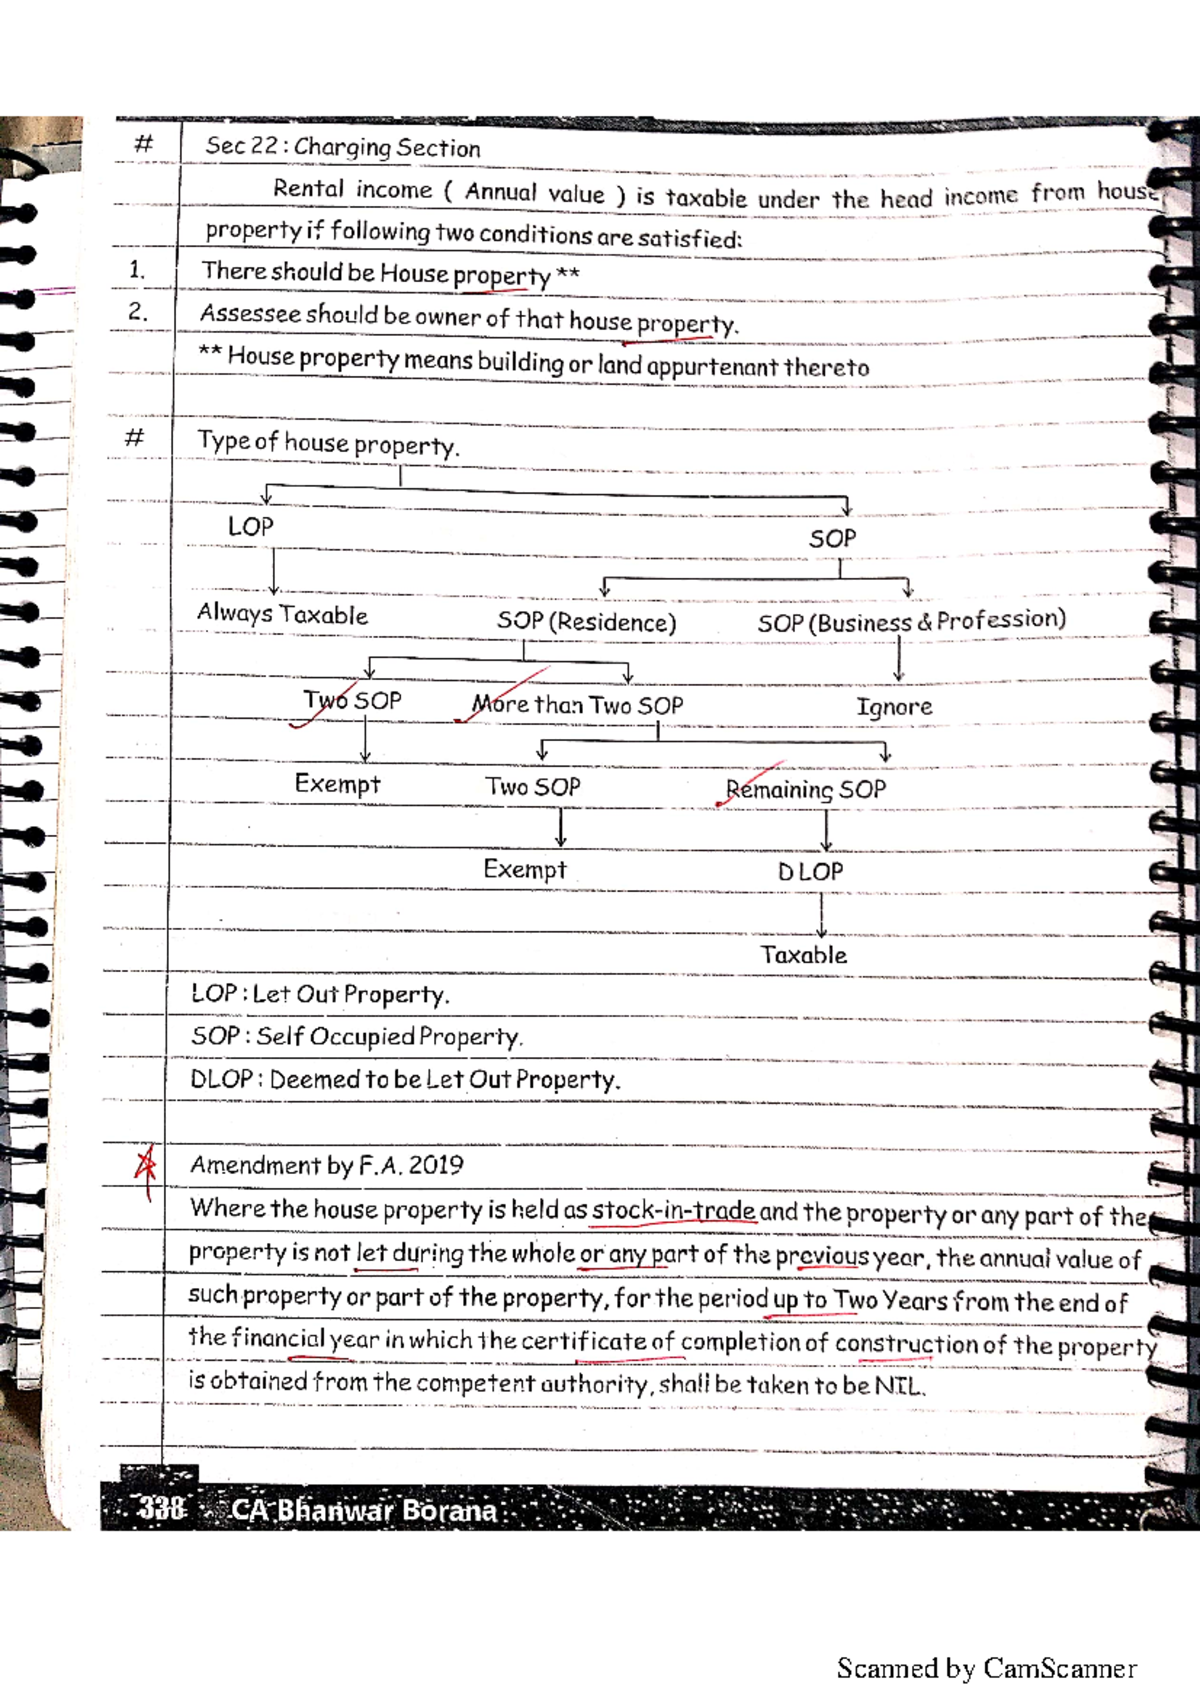 # Sec 22 : Charging Section
Rental income ( Annual value ) is taxable under the head income from house
property if following two conditions are satisfied:
1. There should be House property **
2. Assessee should be owner of that house property.
** House property means building or land appurtenant thereto
# Type of house property.
LOP SOP
Always Taxable SOP (Residence) SOP (Business & Profession)
Two SOP More than Two SOP Ignore
Exempt Two SOP Remaining SOP
Exempt DLOP
Taxable
LOP : Let Out Property.
SOP : Self Occupied Property.
DLOP : Deemed to be Let Out Property.
Amendment by F.A. 2019
Where the house property is held as stock-in-trade and the property or any part of the
property is not let during the whole or any part of the previous year, the annual value of
such property or part of the property, for the period up to Two Years from the end of
the financial year in which the certificate of completion of construction of the property
is obtained from the competent authority, shall be taken to be NIL.
338 CA Bhanwar Borana
Scanned by CamScanner